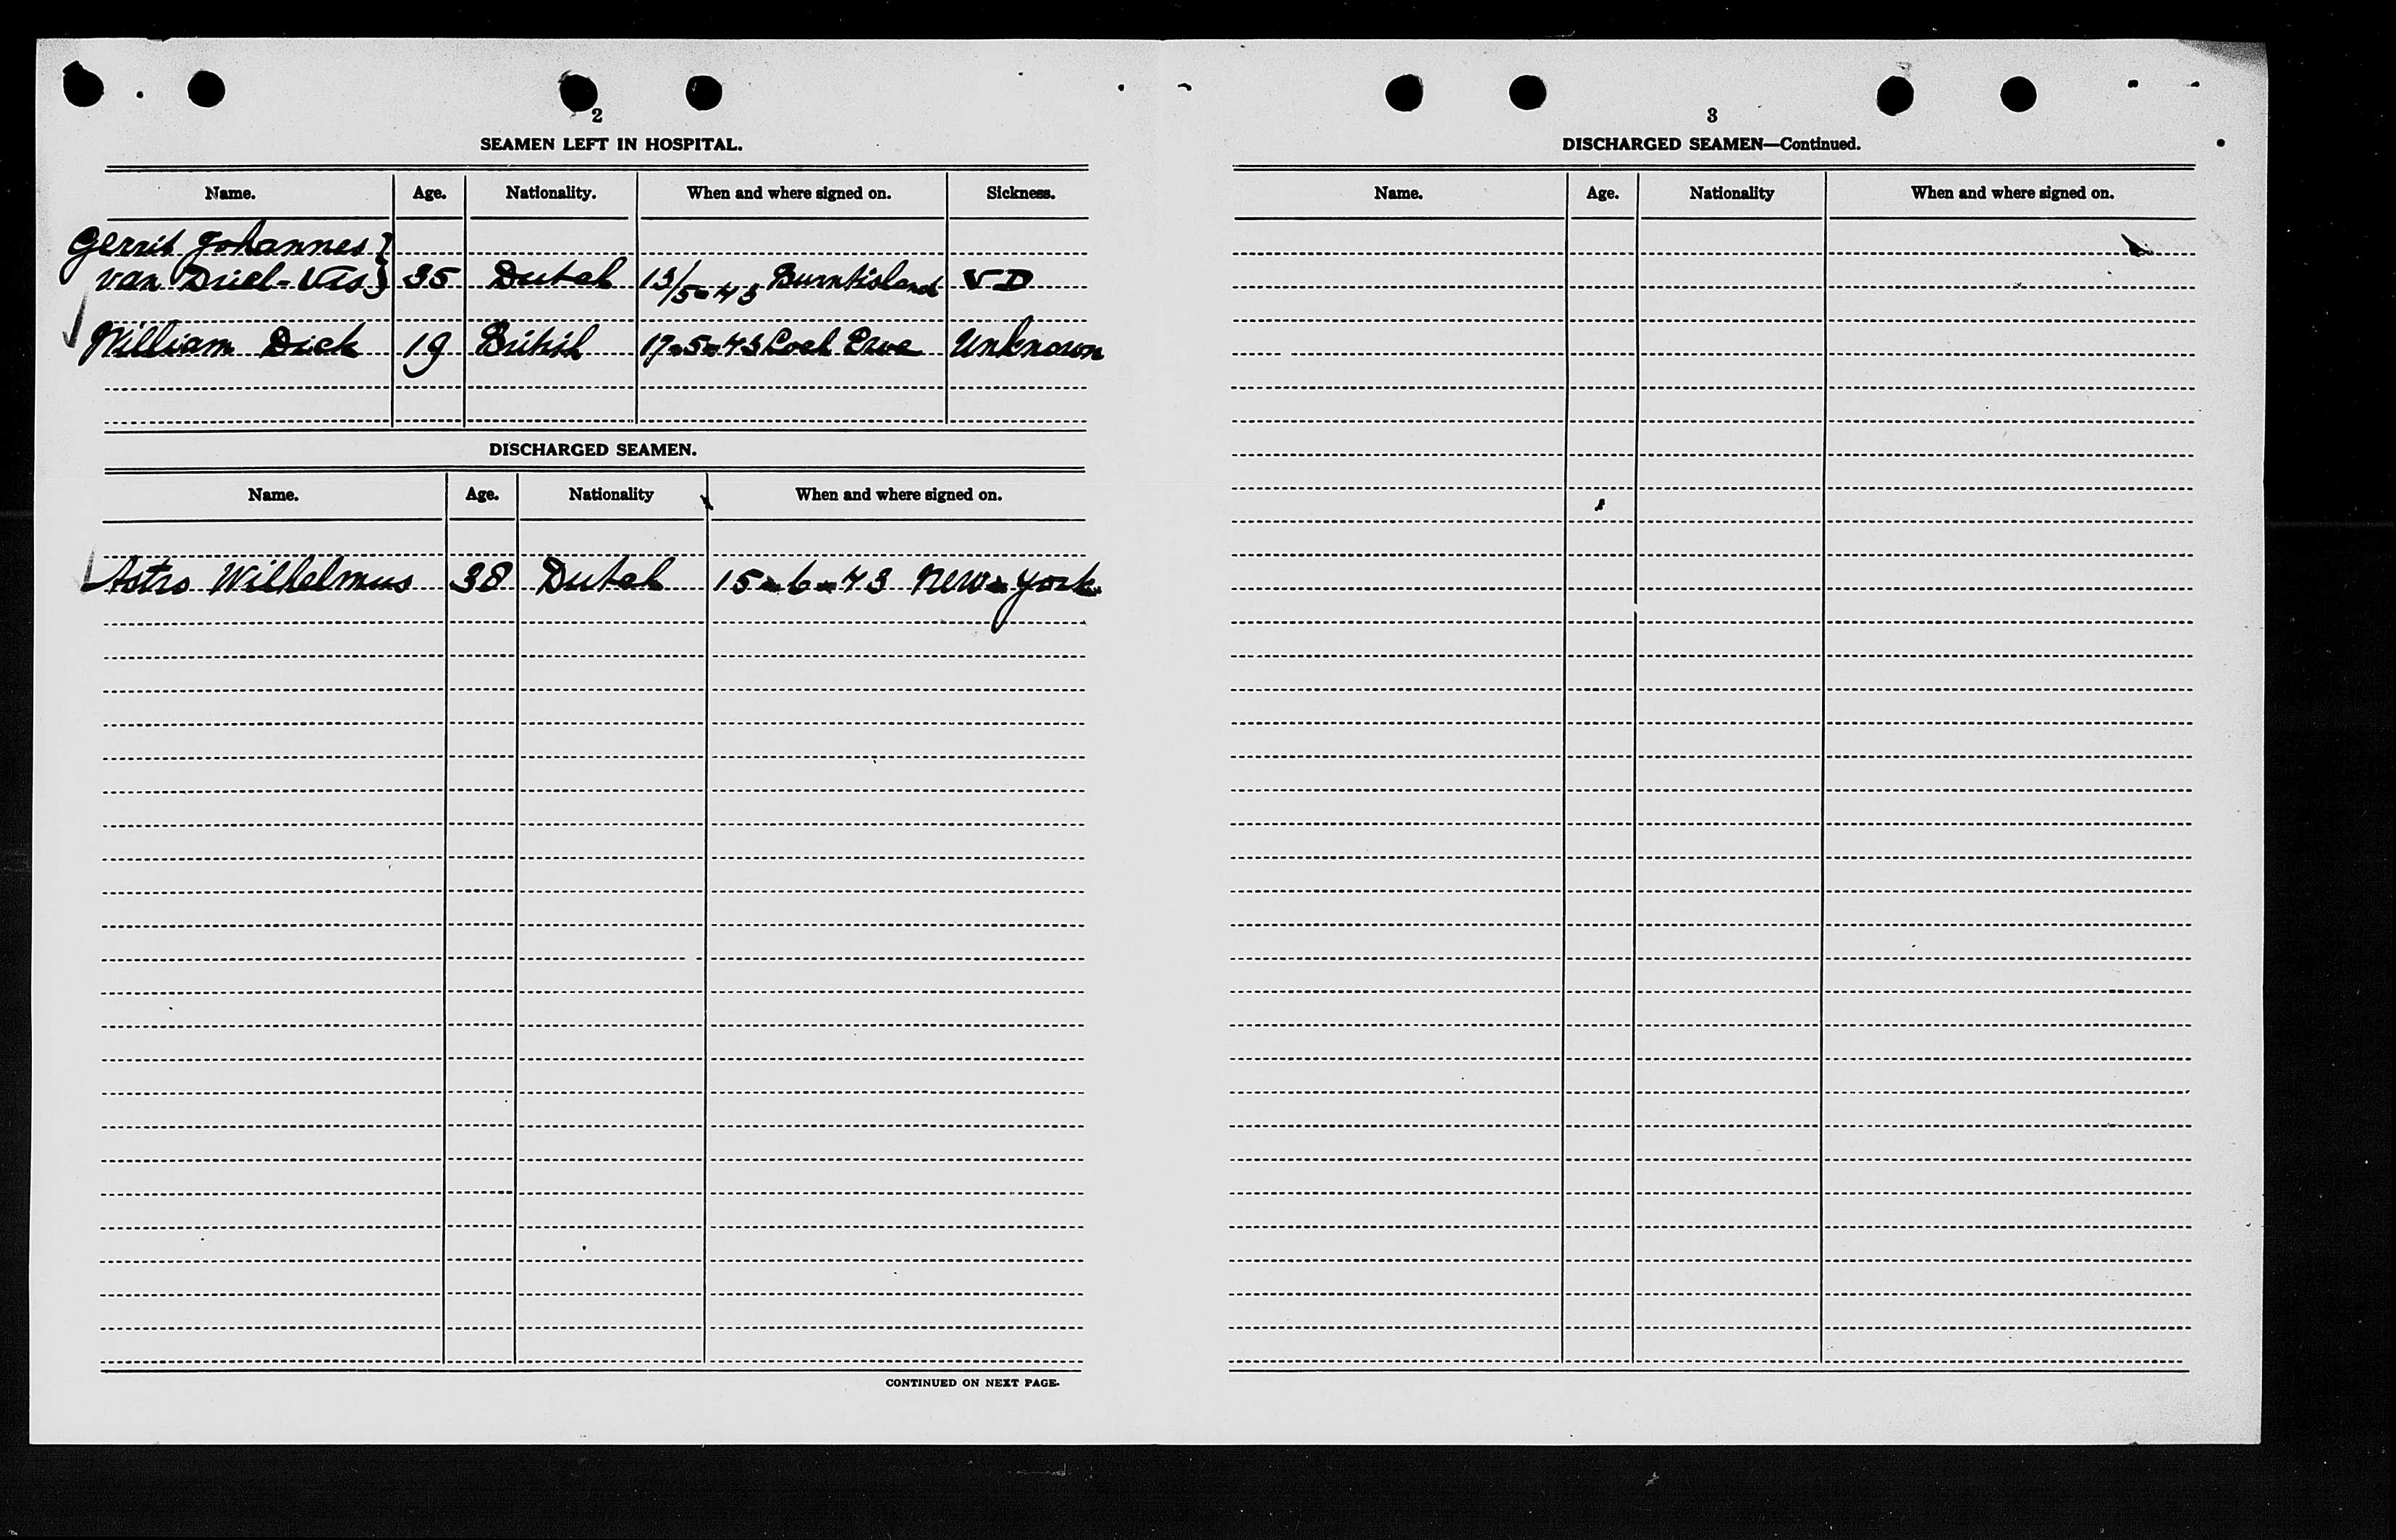 2
SEAMEN LEFT IN HOSPITAL.
Name. Age. Nationality. When and where signed on. Sickness.
Gerrit Johannes }
van Driel-Vis } 35 Dutch 13/5-43 Burntisland VD
William Dick 19 British 17-5-43 Loch Ewe Unknown
DISCHARGED SEAMEN.
Name. Age. Nationality When and where signed on.
Astro Wilhelmus 38 Dutch 15-6-43 New-York.
CONTINUED ON NEXT PAGE.
3
DISCHARGED SEAMEN—Continued.
Name. Age. Nationality When and where signed on.